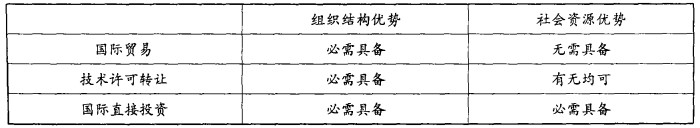 组织结构优势 社会资源优势
国际贸易 必需具备 无需具备
技术许可转让 必需具备 有无均可
国际直接投资 必需具备 必需具备